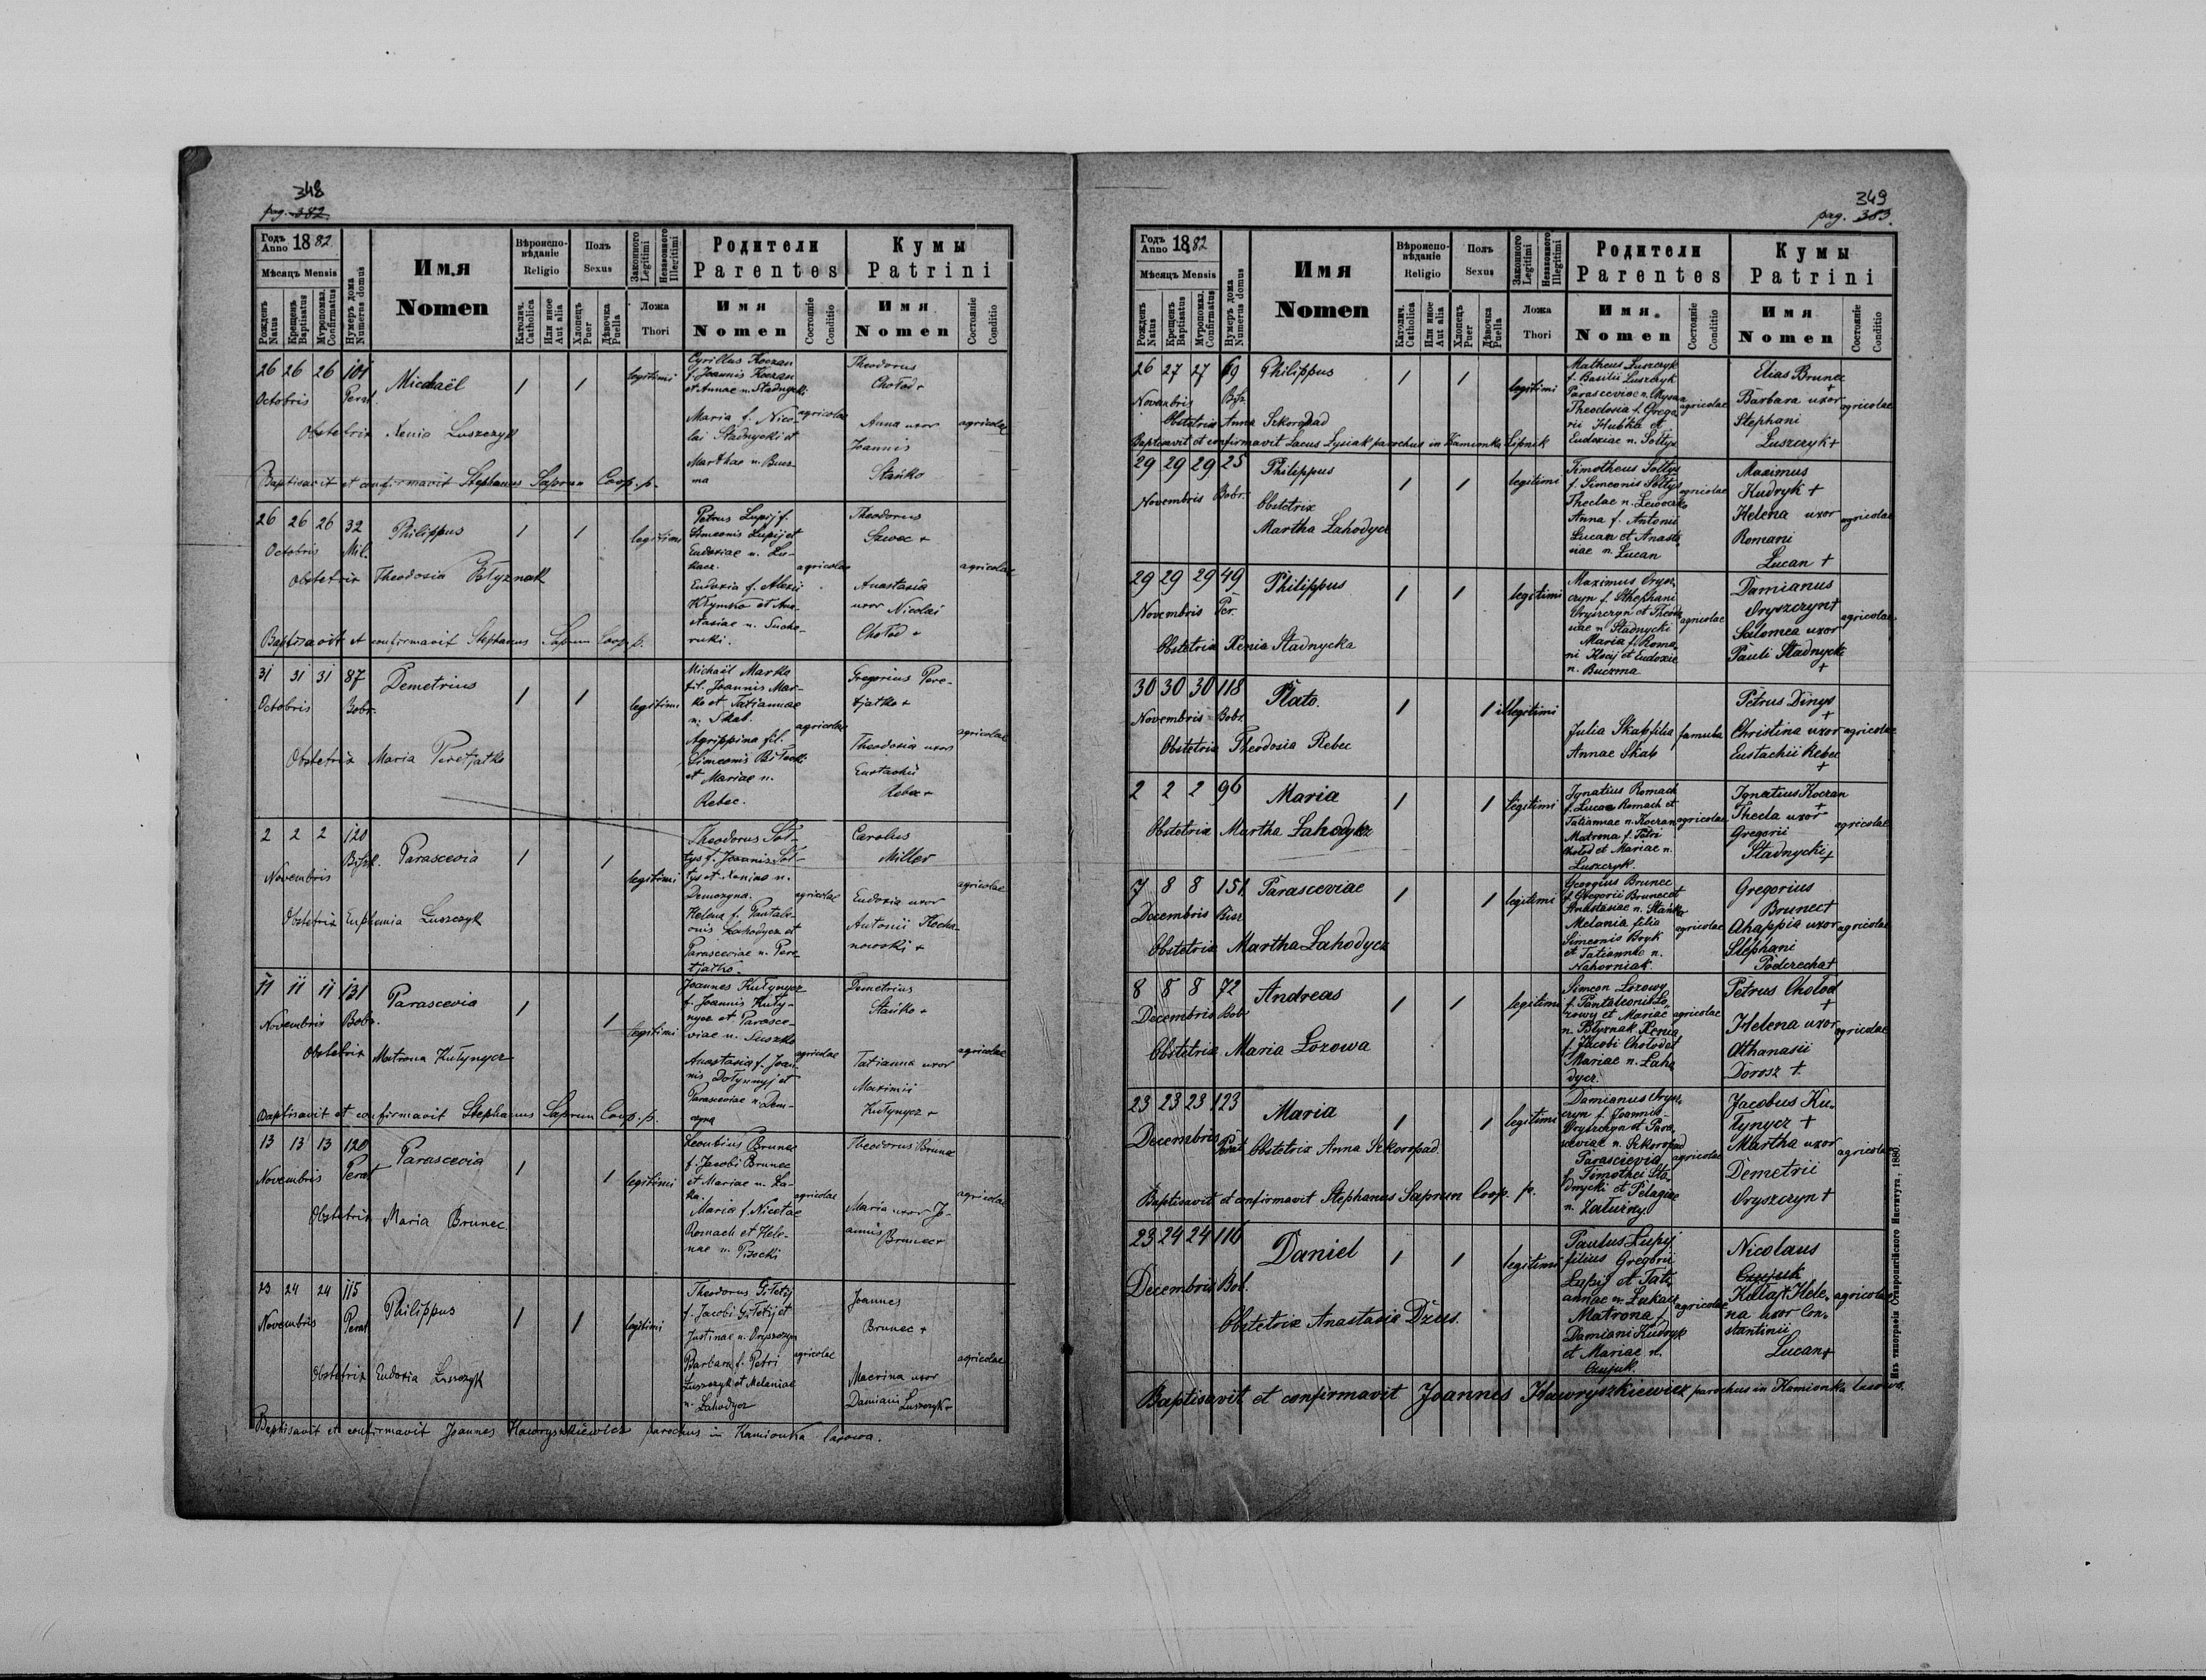 348
pag. 382.
Годъ Anno 1882
Мѣсяцъ Mensis
Рожденъ Natus
Крещенъ Baptisatus
Мѵропомаз. Confirmatus
Нумеръ дома Numerus domus
Имя
Nomen
Вѣроиспо-вѣданіе
Religio
Католич. Catholica
Или иное Aut alia
Полъ
Sexus
Хлопецъ Puer
Дѣвочка Puella
Законного Legitimi
Незаконного Illegitimi
Ложа
Thori
Родители
Parentes
Имя
Nomen
Состояніе Conditio
Кумы
Patrini
Имя
Nomen
Состояніе Conditio
26 26 26 101
Octobris Perat.
Michaël
1 1 legitimi
Obstetrix Xenia Luszczyk
Cyrillus Koczan
f. Joannis Koczan
et Annae n. Stadnycki
Maria f. Nico-
lai Stadnycki et
Marthae n. Bucz-
ma
agricolae
Theodorus
Chołod +
Anna uxor
Joannis
Stańko
agricolae
Baptisavit et confirmavit Stephanus Saprun Coop. p.
26 26 26 32
Octobris Mil.
Philippus
1 1 legitimi
Obstetrix Theodosia Błyznak
Petrus Lupij f.
Simeonis Lupij et
Eudoxiae n. Lu-
kacz.
Eudoxia f. Alexii
Kłymko et Ana-
stasiae n. Sucho-
rucki.
agricolae
Theodorus
Szwec +
Anastasia
uxor Nicolai
Chołod +
agricolae
Baptisavit et confirmavit Stephanus Saprun Coop. p.
31 31 31 87
Octobris Bobr.
Demetrius
1 1 legitimi
Obstetrix Maria Peretjatko
Michaël Marko
fil. Joannis Mar-
ko et Tatiannae
n. Skab.
Agrippina fil.
Simeonis Biłecki
et Mariae n.
Rebec.
agricolae
Gregorius Pere-
tjatko +
Theodosia uxor
Eustachii
Rebec +
agricolae
2 2 2 120
Novembris
Parascevia
1 1 legitimi
Obstetrix Euphemia Luszczyk
Theodorus Soł-
tys f. Joannis Soł-
tys et Xeniae n.
Demczyna.
Helena f. Pantale-
onis Lahodycz et
Parasceviae n. Pere-
tjatko.
agricolae
Carolus
Miller
Eudoxia uxor
Antonii Kocha-
nowski +
agricolae
11 11 11 131
Novembris Bobr.
Parascevia
1 1 legitimi
Obstetrix Matrona Kułynycz
Joannes Kułynycz
f. Joannis Kuły-
nycz et Parasce-
viae n. Suszko
Anastasia f. Joan-
nis Dołynnyj et
Parasceviae n. Dem-
czyna
agricolae
Demetrius
Stańko +
Tatianna uxor
Maximii
Kułynycz +
agricolae
Baptisavit et confirmavit Stephanus Saprun Coop. p.
13 13 13 120
Novembris Perat
Parascevia
1 1 legitimi
Obstetrix Maria Brunec.
Leontius Brunec
f. Jacobi Brunec
et Mariae n. La-
Maria f. Nicetae
Romach et Hele-
nae n. Pisocki
agricolae
Theodorus Brunec
Maria uxor Jo-
annis Brunec +
agricolae
23 24 24 115
Novembris Perat
Philippus
1 1 legitimi
Obstetrix Eudoxia Luszczyk
Theodorus Giłetij
f. Jacobi Giłetij et
Justinae n. Oryszczyn
Barbara f. Petri
Luszczyk et Melaniae
n. Lahodycz
agricolae
Joannes
Brunec +
Macrina uxor
Damiani Luszczyk +
agricolae
Baptisavit et confirmavit Joannes Hawryszkiewicz parochus in Kamionka lasowa.
349
pag. 383.
Годъ Anno 1882
Мѣсяцъ Mensis
Рожденъ Natus
Крещенъ Baptisatus
Мѵропомаз. Confirmatus
Нумеръ дома Numerus domus
Имя
Nomen
Вѣроиспо-вѣданіе
Religio
Католич. Catholica
Или иное Aut alia
Полъ
Sexus
Хлопецъ Puer
Дѣвочка Puella
Законного Legitimi
Незаконного Illegitimi
Ложа
Thori
Родители
Parentes
Имя
Nomen
Состояніе Conditio
Кумы
Patrini
Имя
Nomen
Состояніе Conditio
26 27 27 69
Novembris
Philippus
1 1 legitimi
Obstetrix Anna Szkoropad
Matheus Luszczyk
f. Basilii Luszczyk
Theodosia f. Grego-
rii Hubka et
Eudoxiae n. Sołtys
agricolae
Elias Brunec
+
Barbara uxor
Stephani
Luszczyk +
agricolae
Baptisavit et confirmavit Lucas Lysiak parochus in Kamionka Lipnik
29 29 29 25
Novembris Bobr.
Philippus
1 1 legitimi
Obstetrix
Martha Lahodycz
Timotheus Sołtys
f. Simeonis Sołtys
Theclae n. Lewoczko
Anna f. Antonii
Lucan et Anasta-
siae n. Lucan
agricolae
Maximus
Kudryk +
Helena uxor
Romani
Lucan +
agricolae
29 29 29 49
Novembris Per.
Philippus
1 1 legitimi
Obstetrix Xenia Stadnycka
Maximus Orysz-
czyn f. Stephani
Oryszczyn et Theodo-
siae n. Stadnycki
Maria f. Roma-
ni Kocij et Eudoxiae
n. Buczma
agricolae
Damianus
Oryszczyn +
Salomea uxor
Pauli Stadnycki
+
agricolae
30 30 30 118
Novembris Bobr.
Plato.
1 1 illegitimi
Obstetrix Theodosia Rebec
Julia Skab filia
Annae Skab
famula
Petrus Dinys
+
Christina uxor
Eustachii Rebec
+
agricolae
2 2 2 96
Maria
1 1 legitimi
Obstetrix Martha Lahodycz
Ignatius Romach
f. Lucae Romach et
Tatiannae n. Koczan
Matrona f. Petri
Chołod et Mariae n.
Luszczyk.
agricolae
Ignatius Koczan
+
Thecla uxor
Gregorii
Stadnycki +
agricolae
7 8 8 151
Decembris Bisz
Parasceviae
1 1 legitimi
Obstetrix Martha Lahodycz
Georgius Brunec
f. Gregorii Brunec et
Anastasiae n. Stańko
Melania filia
Simeonis Bryk
et Tatiannae n.
Nahorniak.
agricolae
Gregorius
Brunec +
Ahappia uxor
Stephani
Podcrecha +
agricolae
8 8 8 72
Decembris Bobr
Andreas
1 1 legitimi
Obstetrix Maria Łozowa
Simeon Łozowy
f. Pantaleonis Ło-
zowy et Mariae
n. Błyznak Xenia
f. Jacobi Chołod et
Mariae n. Laho-
dycz.
agricolae
Petrus Chołod
+
Helena uxor
Athanasii
Dorosz +
agricolae
23 23 23 123
Decembris Perat
Maria
1 1 legitimi
Obstetrix Anna Szkoropad.
Damianus Orysz-
czyn f. Joannis
Oryszczyn et Para-
sceviae n. Szkoropad
Parascievia
f. Timothei Sta-
dnycki et Pelagiae
n. Zaturny.
agricolae
Jacobus Ku-
łynycz +
Martha uxor
Demetrii
Oryszczyn +
agricolae
Baptisavit et confirmavit Stephanus Saprun Coop. p.
23 24 24 116
Decembris Bob.
Daniel
1 1 legitimi
Obstetrix Anastasia Dzus.
Paulus Lupij
filius Gregorii
Lupij et Tati-
annae n. Lukacz
Matrona f.
Damiani Kudryk
et Mariae n.
Czujuk.
agricolae
Nicolaus
Czujuk
Hele-
na uxor Con-
stantinii
Lucan +
agricolae
Baptisavit et confirmavit Joannes Hawryszkiewicz parochus in Kamionka lasowa.
Изъ типографіи Ставропигійского Института, 1880.